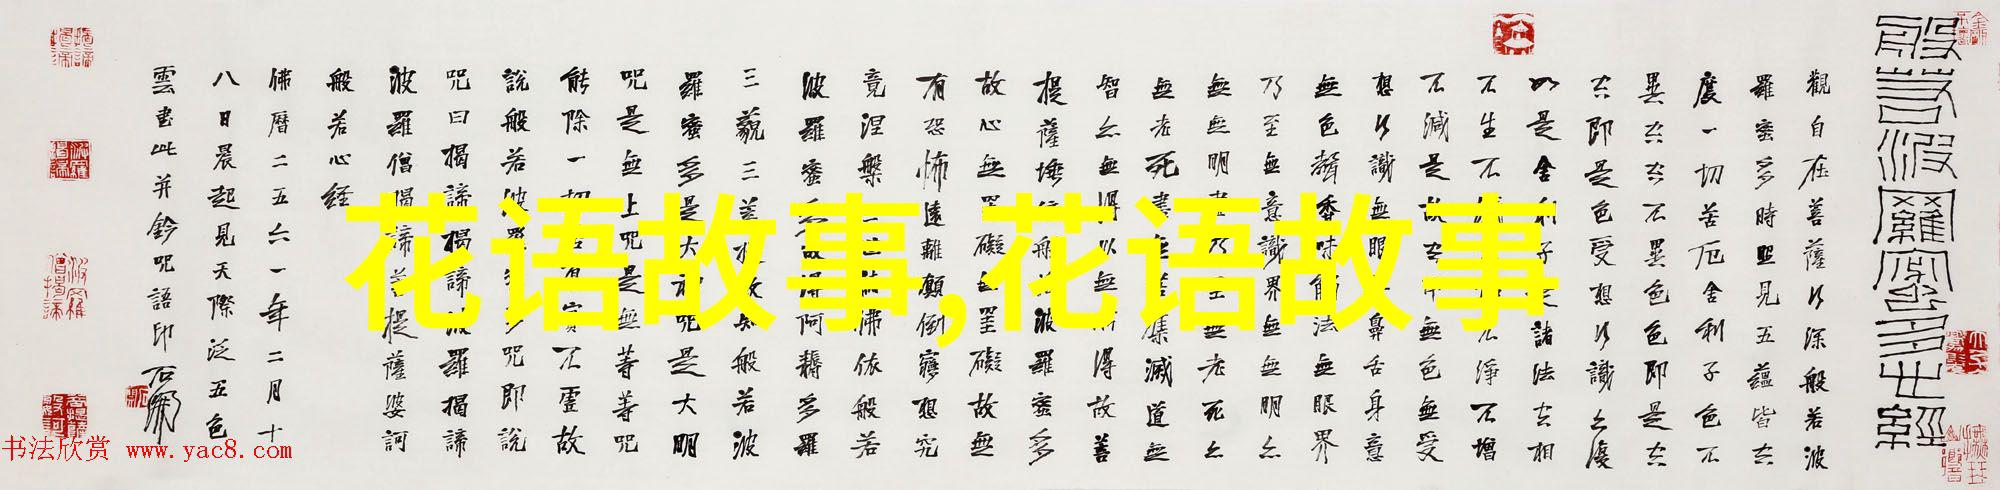 般若波羅蜜多心經
觀自在菩薩行深般若波
羅蜜多時照見五蘊皆空
度一切苦厄舍利子色不
異空空不異色色即是空
空即是色受想行識亦復
如是舍利子是諸法空相
不生不滅不垢不淨不增
不減是故空中無色無受
想行識無眼耳鼻舌身意
無色聲香味觸法無眼界
乃至無意識界無無明亦
無無明盡乃至無老死亦
無老死盡無苦集滅道無
智亦無得以無所得故菩
提薩埵依般若波羅蜜多
故心無罣礙無罣礙故無
有恐怖遠離顛倒夢想究
竟涅槃三世諸佛依般若
波羅蜜多故得阿耨多羅
三藐三菩提故知般若波
羅蜜多是大神咒是大明
咒是無上咒是無等等咒
能除一切苦真實不虛故
說般若波羅蜜多咒即說
咒曰揭諦揭諦波羅揭諦
波羅僧揭諦菩提薩婆訶
般若心經
佛曆二五六一年二月十
八日晨起見天際泛五色
雲書此并鈐咒語印 石開
花语故事,花语故事
书法欣赏 www.yac8.com